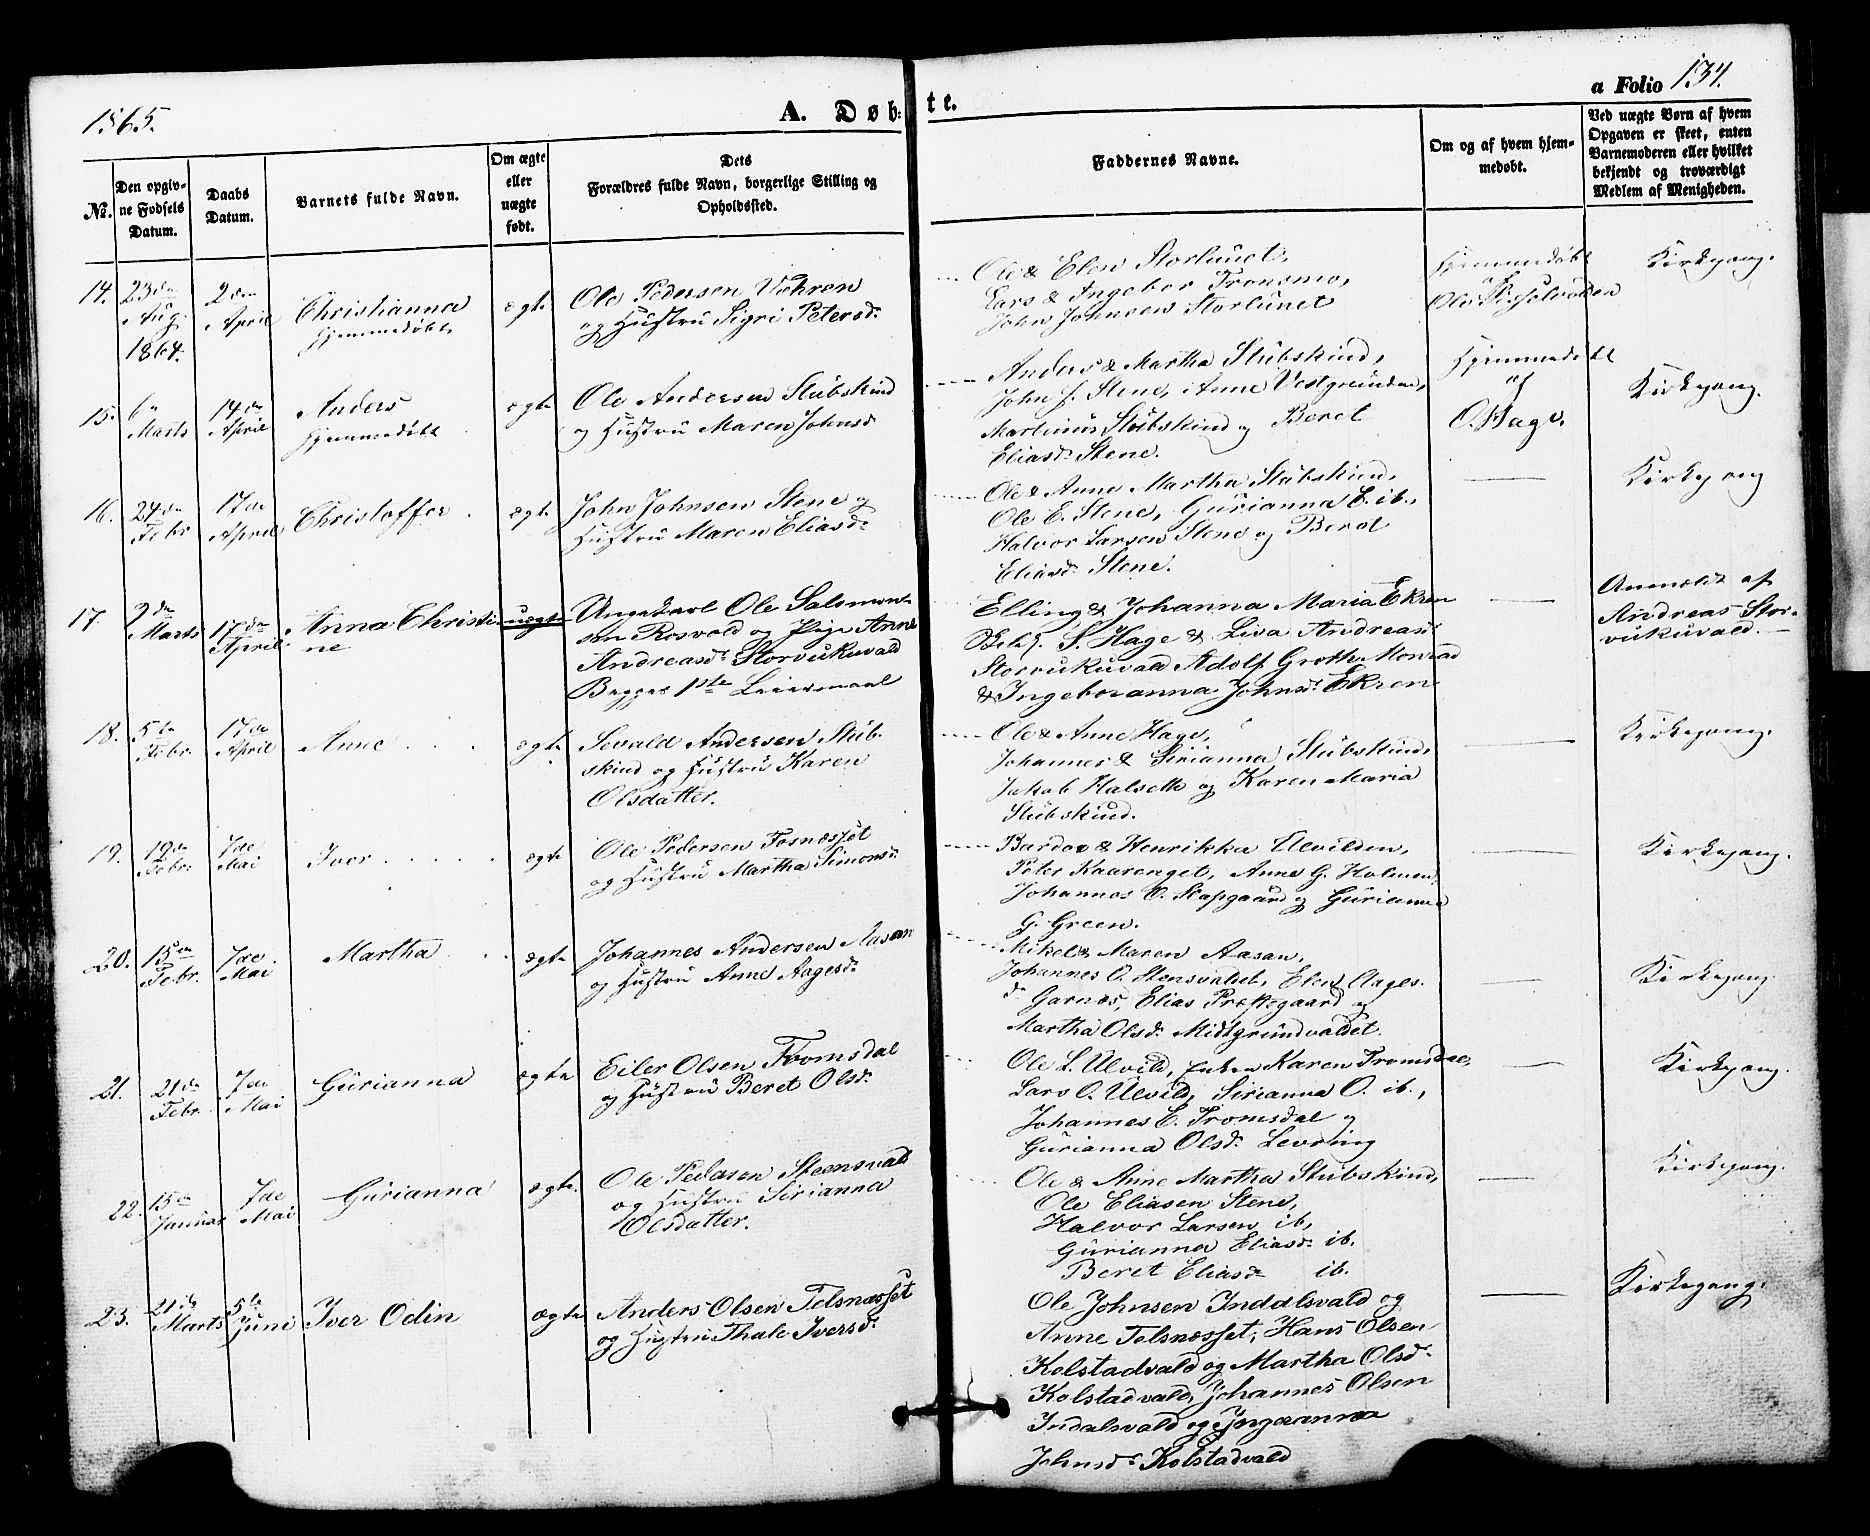 1865.
A. Døb-
te.
a Folio 134.
№.
Den opgiv-
ne Fødsels
Datum.
Daabs
Datum.
Barnets fulde Navn.
Om ægte
eller
uægte
født.
Dets
Forældres fulde Navn, borgerlige Stilling og
Opholdssted.
Faddernes Navne.
Om og af hvem hjem-
medøbt.
Ved uægte Børn af hvem
Opgaven er skeet, enten
Barnemoderen eller hvilket
bekjendt og troværdigt
Medlem af Menigheden.
14.
23de
Aug.
1864.
2den
April
Christianna
hjemmedøbt
ægte
Ole Pedersen Vehren
og Hustru Sigri Petersd.
Ole & Elen Storlunet,
Lars & Ingebor Tronsmo,
John Johnsen Storlunet
Hjemmedøbt
af
Ole
Kirkegang.
15.
6te
Marts
14de
April
Anders
hjemmedøbt
ægte
Ole Andersen Stubskind
og Hustru Maren Johnsd.
Anders & Martha Stubskind,
John J. Stene, Anne Vestgrunden,
Martinus Stubskind og Beret
Eliasd. Stene.
Hjemmedøbt
af
O. Hage.
Kirkegang.
16.
24de
Febr
17de
April
Christoffer
ægte
John Johnsen Stene og
Hustru Maren Eliasd.
Ole & Anne Martha Stubskind,
Ole E. Stene, Gurianna E. ib.,
Halvor Larsen Stene og Beret
Eliasd. Stene.
Kirkegang
17.
2de
Marts
17de
April
Anna Christi-
ne
uægte
Ungekarl Ole Salomon-
sen Rosvold og Pige Anne
Andreasd. Storvukuvald
Begges 1ste Leiermaal
Elling & Johanna Maria Ekren
S. Hage & Lisa Andreasd.
Storvukuvald Adolf Groth Monrad
& Ingeboranna Johnsd. Ekren
Anmeldt af
Andreas Stor-
vukuvald.
18.
5te
Febr.
17de
April
Anne
ægte
Sevald Andersen Stub-
skind og Hustru Karen
Olsdatter.
Ole & Anne Hage,
Johannes & Sirianna Stubskind,
Jakob Halseth og Karen Maria
Stubskind.
Kirkegang.
19.
19de
Febr.
7de
Mai
Iver
ægte
Ole Pedersen Fosnæsset
og Hustru Martha Simonsd.
Bardon & Henrikka Ulvilden,
Peter Kaarenget, Anne G. Holmen,
Johannes O. Stapgaard og Gurianna
G. Green.
Kirkegang.
20.
15de
Febr.
7de
Mai
Martha
ægte
Johannes Andersen Aasan
og Hustru Anne Aagesd.
Mikel & Maren Aasan,
Johannes O. Stensvaldet, Elen Aages-
d. Garnæs, Elias Præstegaard og
Martha Olsd. Midtgrundvaldet.
Kirkegang.
21.
21de
Febr.
7de
Mai
Gurianna
ægte
Eiler Olsen Tromsdal
og Hustru Beret Olsd.
Ole L. Ulvild, Enken Karen Tromsdal,
Lars O. Ulvild, Sirianna O. ib.,
Johannes E. Tromsdal og
Gurianna Olsd. Levring
Kirkegang.
22.
15de
Januar
7de
Mai
Gurianna
ægte.
Ole Pedersen Steensvald
og Hustru Sirianna
Olsdatter.
Ole & Anne Martha Stubskind,
Ole Eliasen Stene,
Halvor Larsen ib,
Gurianna Eliasd. ib.
Beret Eliasd ib.
Kirkegang.
23.
21de
Marts
5te
Juni
Iver Odin
ægte
Anders Olsen Telsnæsset
og Hustru Thale Iversd.
Ole Johnsen Indalsvald og
Anne Telsnæsset, Hans Olsen
Kolstadvald og Martha Olsd.
Kolstadvald, Johannes Olsen
Indalsvald og Ingeranna
Johnsd. Kolstadvald
Kirkegang.